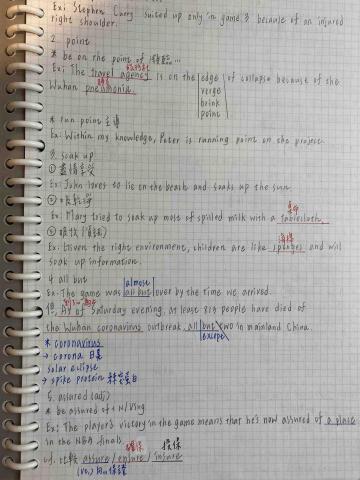 Ex: Stephen Curry suited up only in game 3 because of an injured
right shoulder.
2 point
* be on the point of 瀕臨...
旅行社
Ex: The travel agency is on the edge of collapse because of the
verge
Wuhan pneumonia. brink
肺炎
point
* run point 主導
Ex: Within my knowledge, Peter is running point on the project.
3. soak up
① 盡情享受
Ex: John loves to lie on the beach and soaks up the sun.
② 吸乾淨
桌巾
Ex: Mary tried to soak up most of spilled milk with a tablecloth.
③ 吸收(資訊)
海綿
Ex: Given the right environment, children are like sponges and will
soak up information.
4 all but
almost
Ex: The game was all but over by the time we arrived.
As of Saturday evening, at least 813 people have died of
the Wuhan coronavirus outbreak, all but two in mainland China.
except
* coronavirus
→ corona 日冕
solar eclipse
→ spike protein 棘蛋白
5. assured (adj)
* be assured of + N/Ving
Ex: The player's victory in the game means that he's now assured of a place
in the NBA finals.
確保 投保
cf. 比較 assure / ensure / insure
(vt.) 向..保證